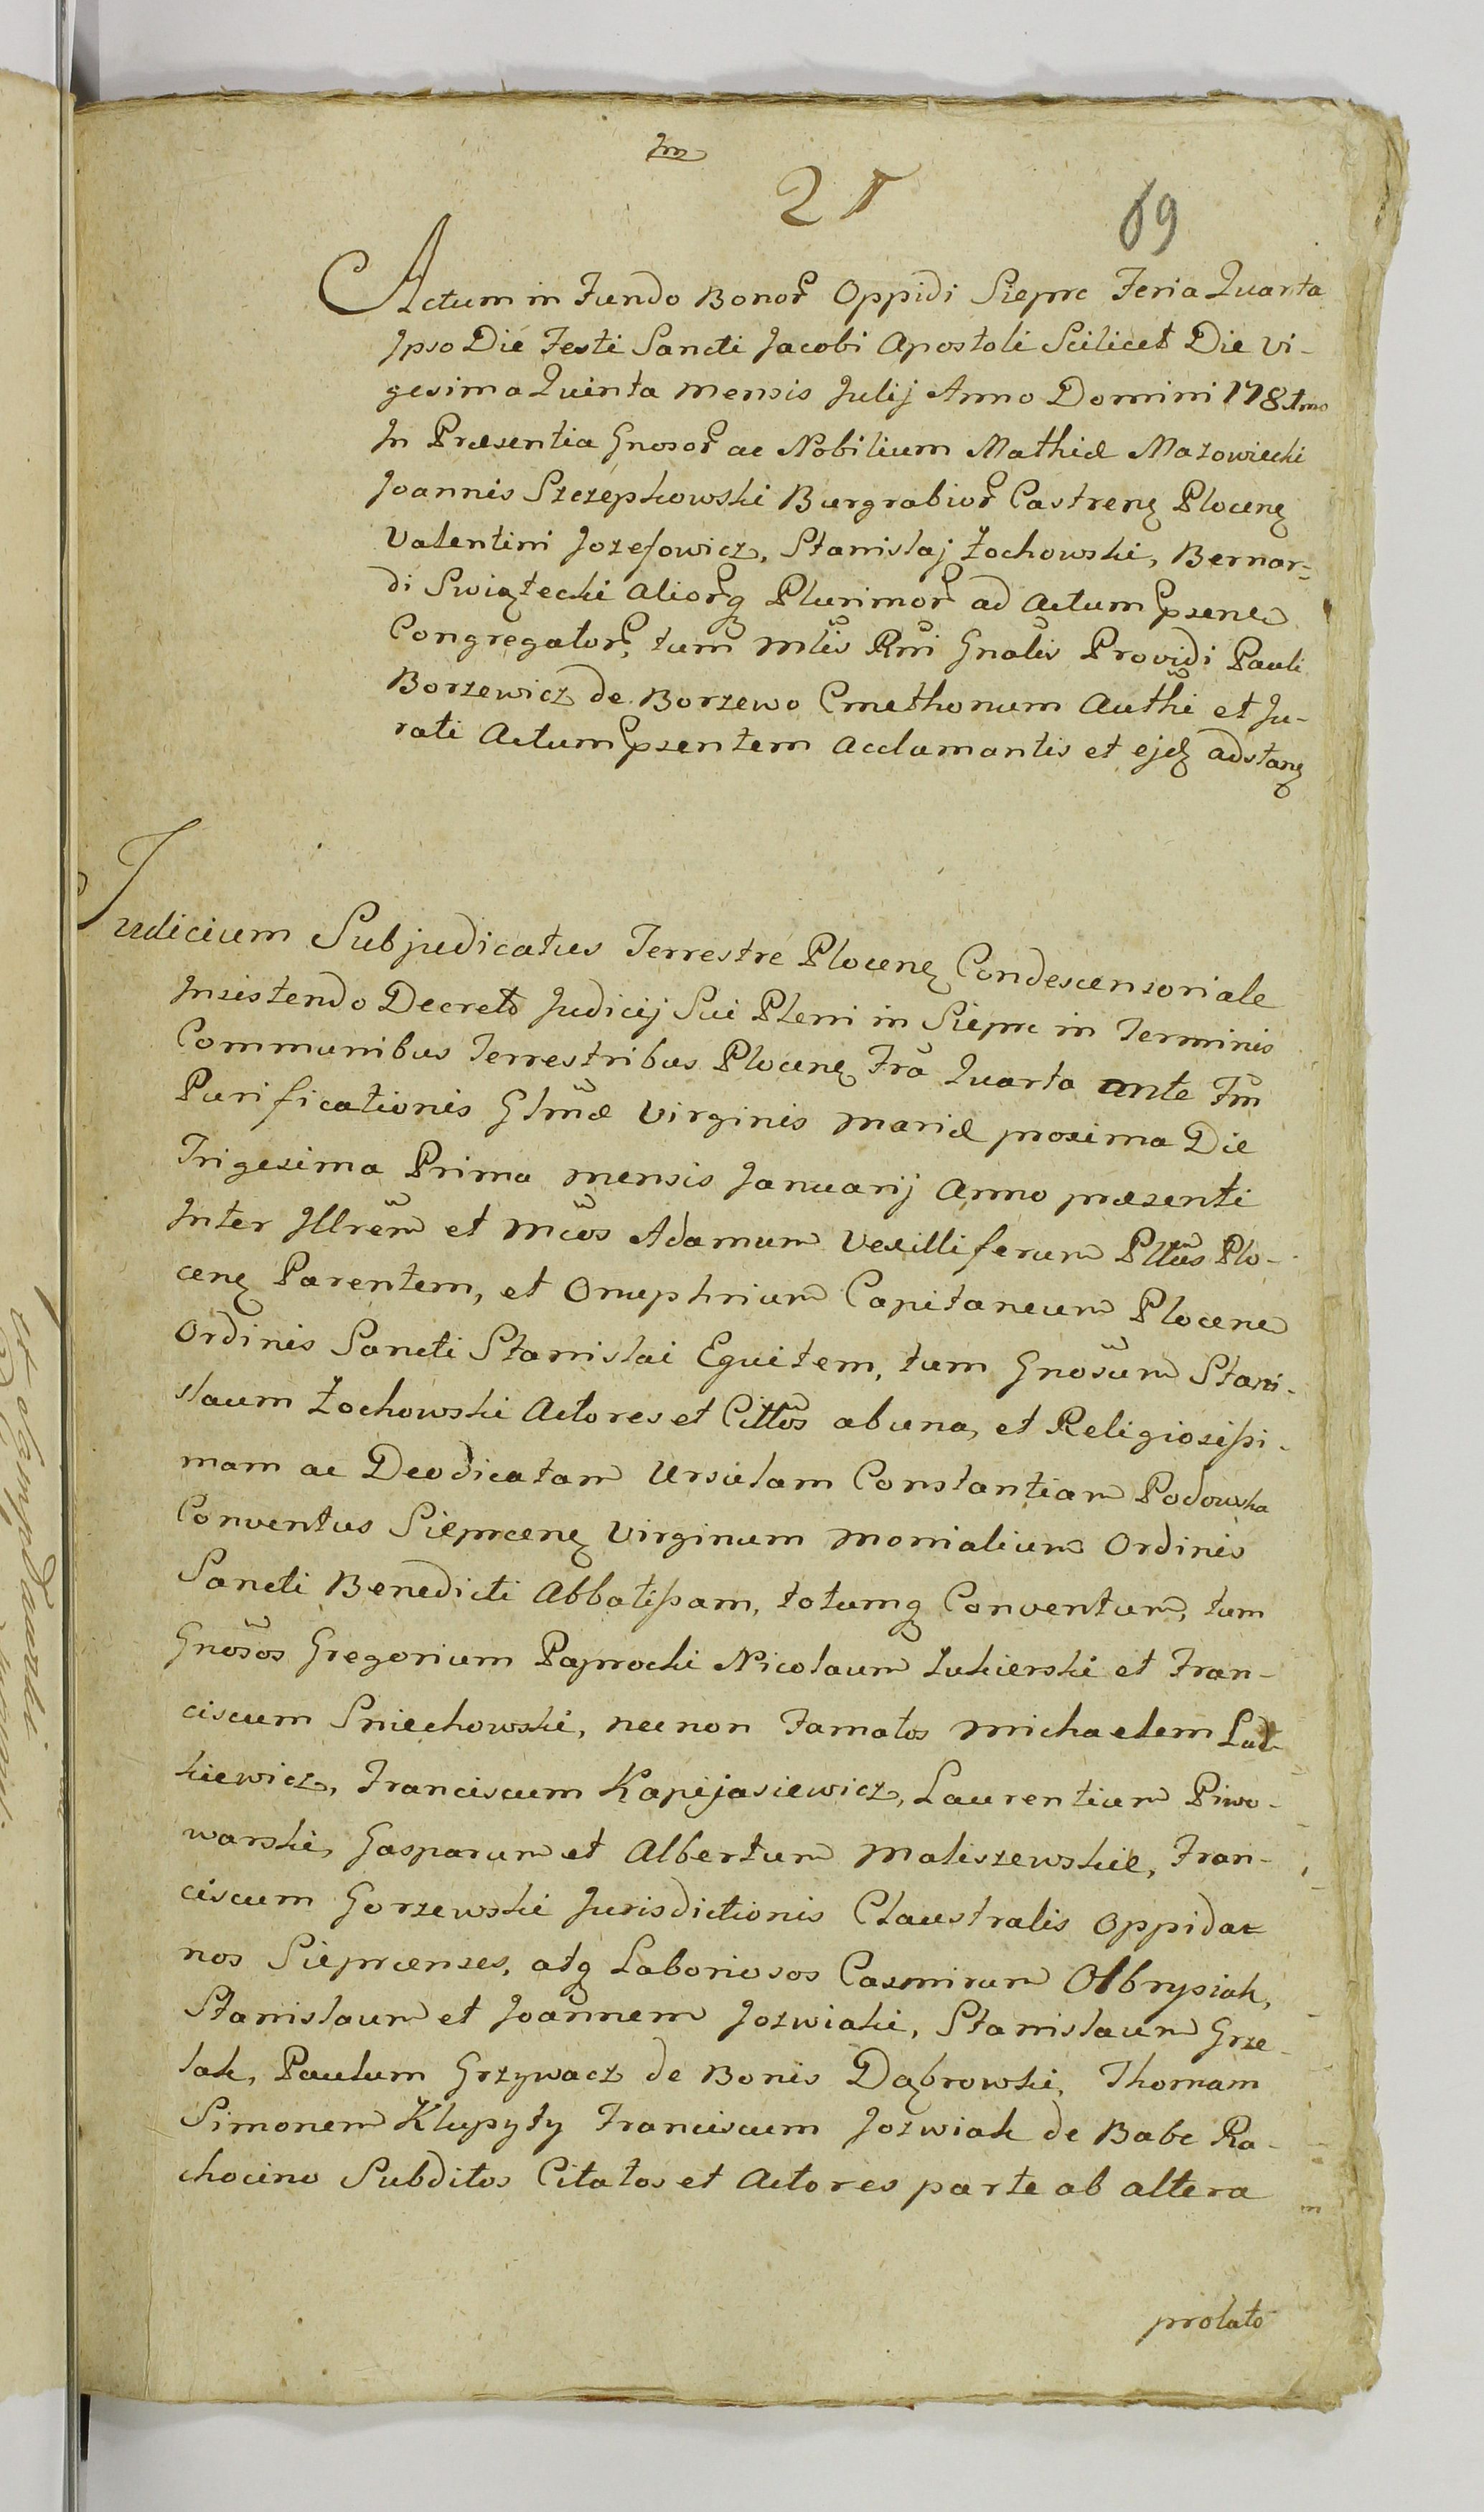 Im
21
69
Actum in Fundo Bonor Oppidi Sieprc Feria Quarta
Ipso Die Festi Sancti Jacobi Apostoli Scilicet Die Vi-
gesima Quinta Mensis Julij Anno Domini 1781mo
In Præsentia Gnosor ac Nobilium Mathiæ Mazowiecki
Joannis Szczepkowski Burgrabior Castren Plocen
Valentini Jozefowicz, Stanislaj Zochowski, Bernar-
di Swiątecki Aliorq Plurimor ad Actum Psenem
Congregator, tum Mlis Rni Gnalis Providi Pauli
Borzewicz de Borzewo Cmethonum Authi et Ju-
rati Actum Psentem Acclamantis et ejd adstan
Judicium Subjudicatus Terrestre Plocen Condescensoriale
Insistendo Decreto Judicij Sui Pleni in Sieprc in Terminis
Communibus Terrestribus Plocen Fra Quarta ante Fm
Purificationis Glmæ Virginis Mariæ proxima Die
Trigesima Prima mensis Januarij Anno præsenti
Inter Illrem et Mcos Adamum Vexilliferum Pttus Plo-
cen Parentem, et Onuphrium Capitaneum Plocen
Ordinis Sancti Stanislai Equitem, tum Gnosum Stani-
slaum Zochowski Actores et Cittos ab una, et Religiosissi-
mam ac Deodicatam Ursulam Constantiam Podowska
Conventus Sieprcen Virginum Monialium Ordinis
Sancti Benedicti Abbatissam, totumq Conventum, tum
Gnosos Gregorium Paprocki Nicolaum Zukierski et Fran-
ciscum Sniechowski, nec non Famatos Michaelem Lut-
kiewicz, Franciscum Kapijasiewicz, Laurentium Piwo-
warski, Gasparum et Albertum Maliszewskie, Fran-
ciscum Gorzewski Jurisdictionis Claustralis Oppida-
nos Sieprcenses, atq Laboriosos Casmirum Olbrysiak,
Stanislaum et Joannem Jozwiaki, Stanislaum Grze-
lak, Paulum Grzywacz de Bonis Dąbrowski, Thomam
Simonem Klupyty Franciscum Jozwiak de Babe Ra-
chocino Subditos Citatos et Actores parte ab altera
prolato